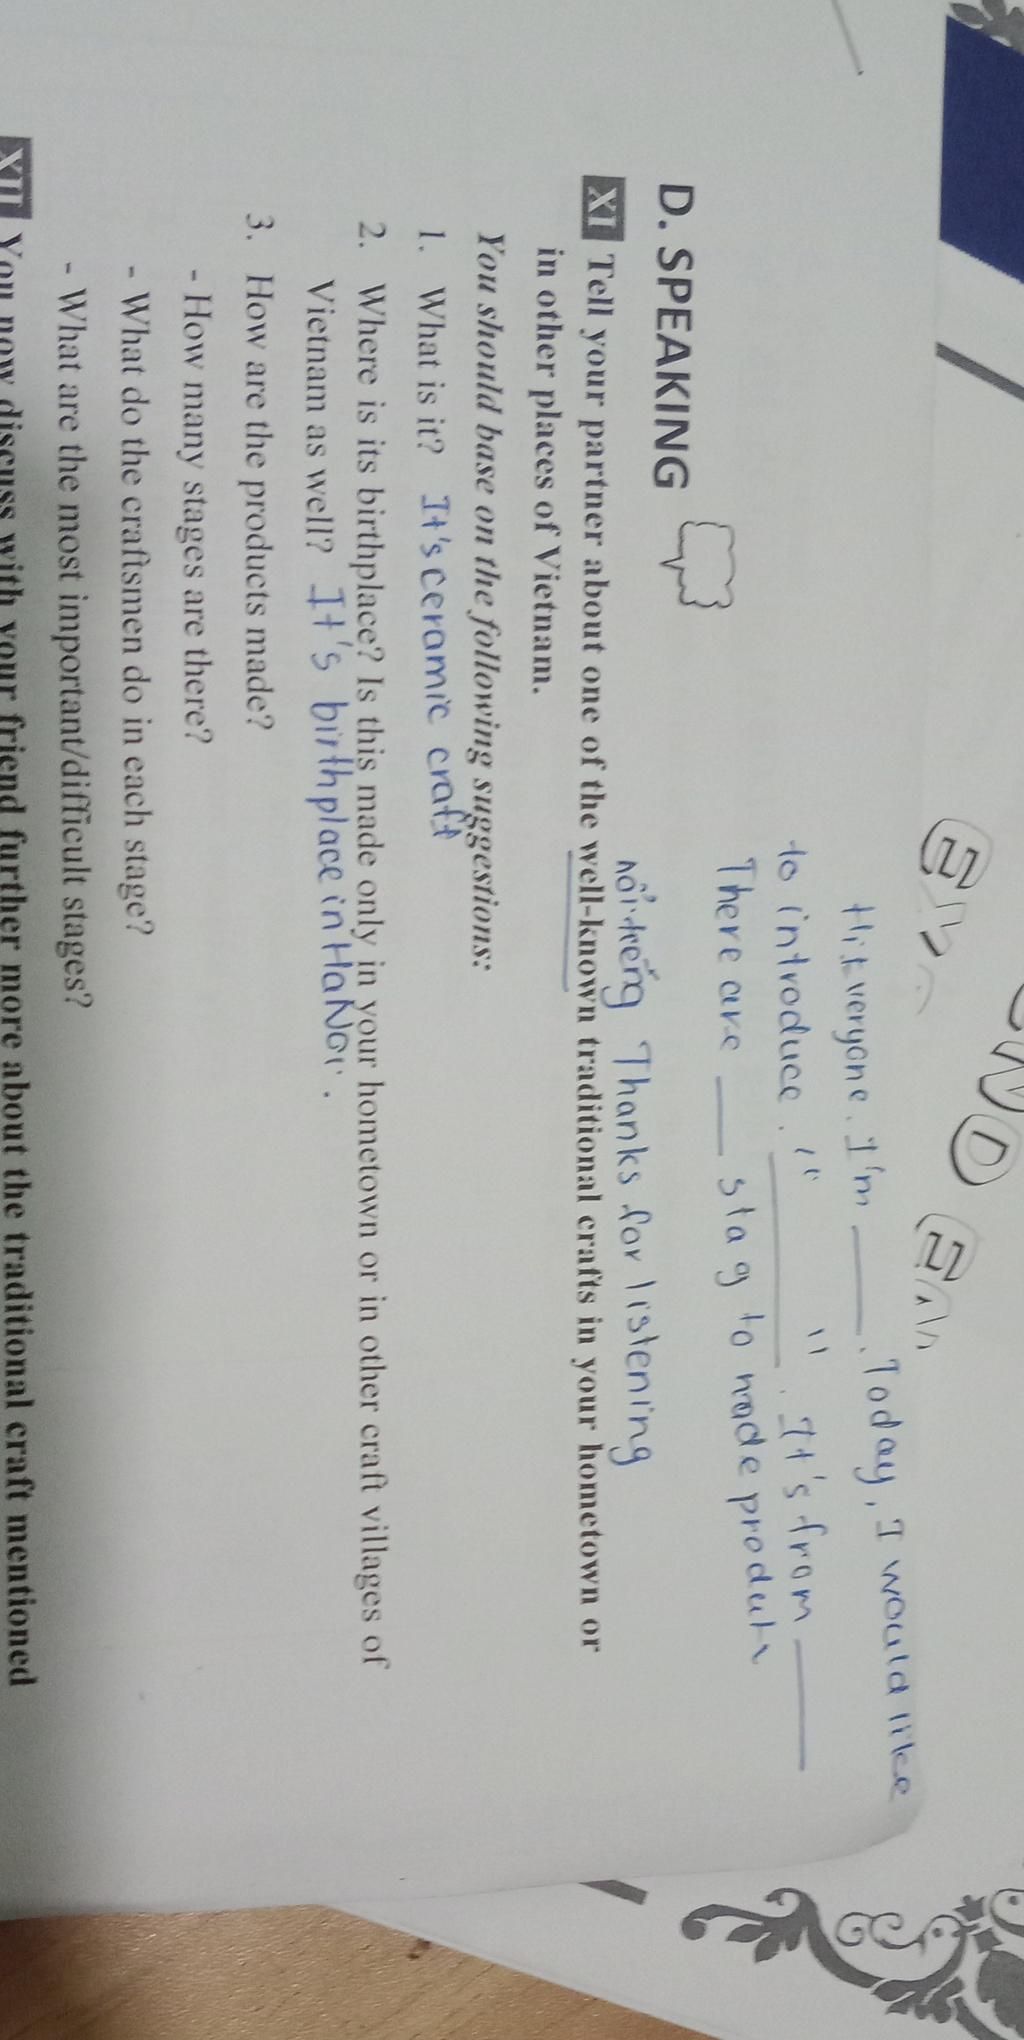 Hi everyone. I'm ___. Today, I would like
to introduce. " ___ ". It's from ___
There are ___ stag to made produts
nổi tiếng Thanks for listening
D. SPEAKING
XI Tell your partner about one of the well-known traditional crafts in your hometown or
in other places of Vietnam.
You should base on the following suggestions:
1. What is it? It's ceramic craft
2. Where is its birthplace? Is this made only in your hometown or in other craft villages of
Vietnam as well? It's birthplace in Ha Noi.
3. How are the products made?
- How many stages are there?
- What do the craftsmen do in each stage?
- What are the most important/difficult stages?
XII You now discuss with your friend further more about the traditional craft mentioned